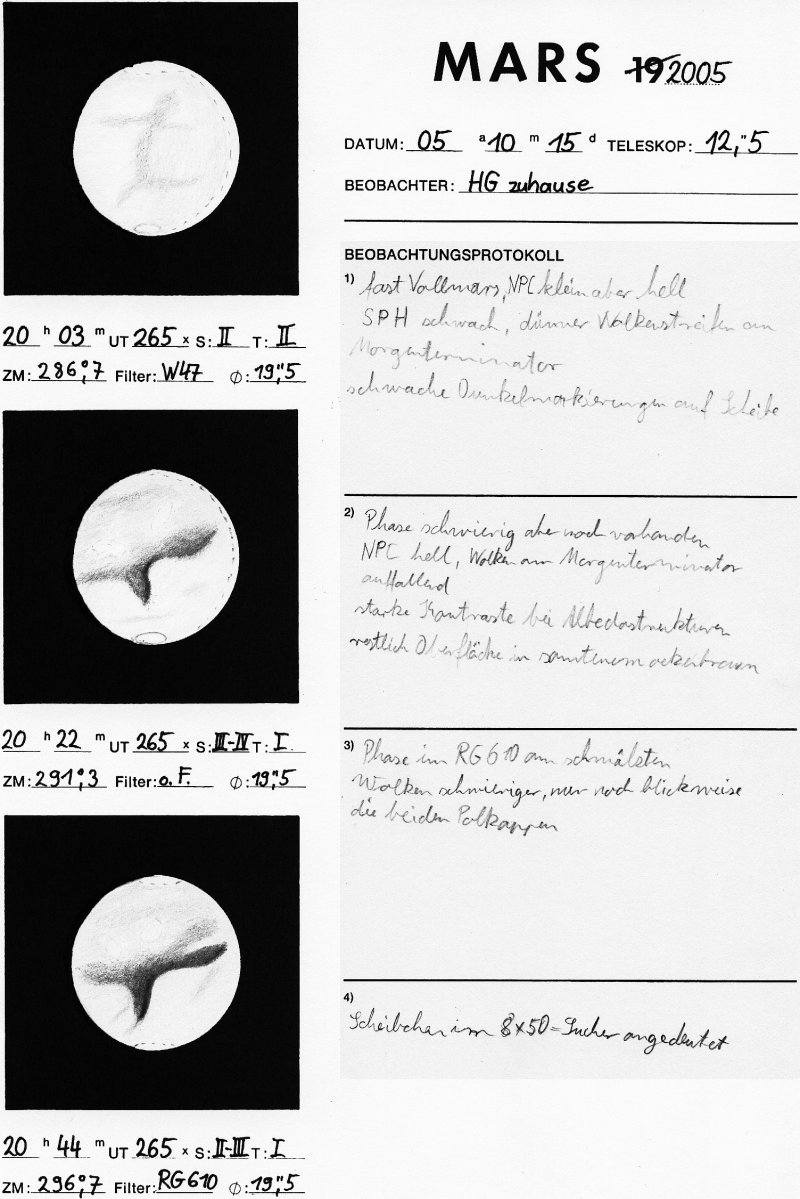 MARS 19 2005
DATUM: 05 a 10 m 15 d TELESKOP: 12,"5
BEOBACHTER: HG zuhause
BEOBACHTUNGSPROTOKOLL
1) fast Vollmars, NPC klein aber hell
SPH schwach, dünner Wolkenstreifen am
Morgenterminator
schwache Dunkelmarkierungen auf Scheibe
20 h 03 m UT 265 x S: II T: II
ZM: 286°,7 Filter: W47 Ø: 19,"5
2) Phase schwierig aber noch vorhanden
NPC hell, Wolken am Morgenterminator
auffallend
starke Kontraste bei Albedostrukturen
restlich Oberfläche in ockerbraun
20 h 22 m UT 265 x S: III-IV T: I
ZM: 291°,3 Filter: o. F. Ø: 19,"5
3) Phase im RG610 am schmälsten
Wolken schwieriger, nur noch blickweise
die beiden Polkappen
4)
Scheibchen im 8x50-Sucher angedeutet
20 h 44 m UT 265 x S: II-III T: I
ZM: 296°,7 Filter: RG610 Ø: 19,"5